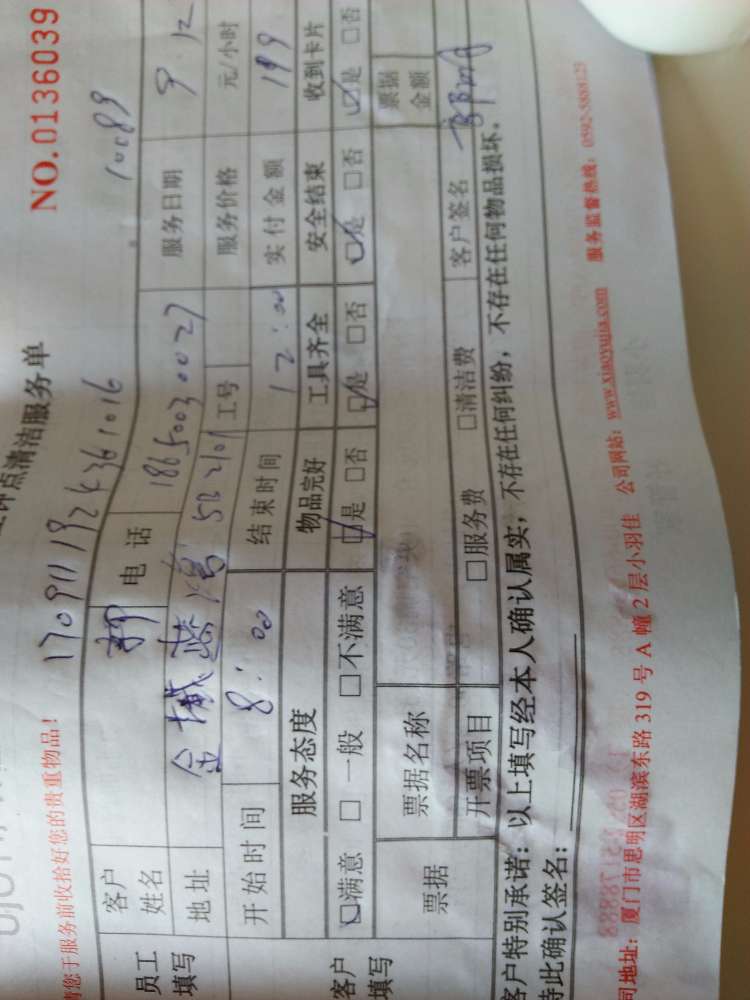 钟点清洁服务单
NO.0136039
请您于服务前收拾好您的贵重物品!
1709111924361016
10089
员工填写
客户姓名
电话 18650030027
服务日期 9.12
地址 金域蓝湾 5B2101
工号
服务价格
元/小时
开始时间 8:00
结束时间 12:00
实付金额 199
客户填写
服务态度 物品完好 工具齐全 安全结束 收到卡片
☑满意 □一般 □不满意 ☑是 □否 ☑是 □否 ☑是 □否 ☑是 □否
票据
票据名称
票据金额
开票项目 □服务费 □清洁费
客户签名
客户特别承诺:以上填写经本人确认属实,不存在任何纠纷,不存在任何物品损坏。
特此确认签名:
公司地址:厦门市思明区湖滨东路319号A幢2层小羽佳 公司网站:www.xiaoyujia.com 服务监督热线:0592-5808123